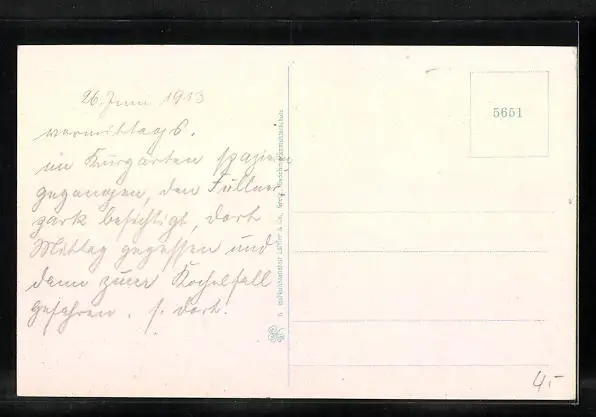 26. Juni 1913
vormittags.
im Kurgarten spazieren
gegangen, den Füllner
park besichtigt, dort
Mittag gegessen und
dann zum Kochelfall
gefahren. s. dort.
5651
4,-